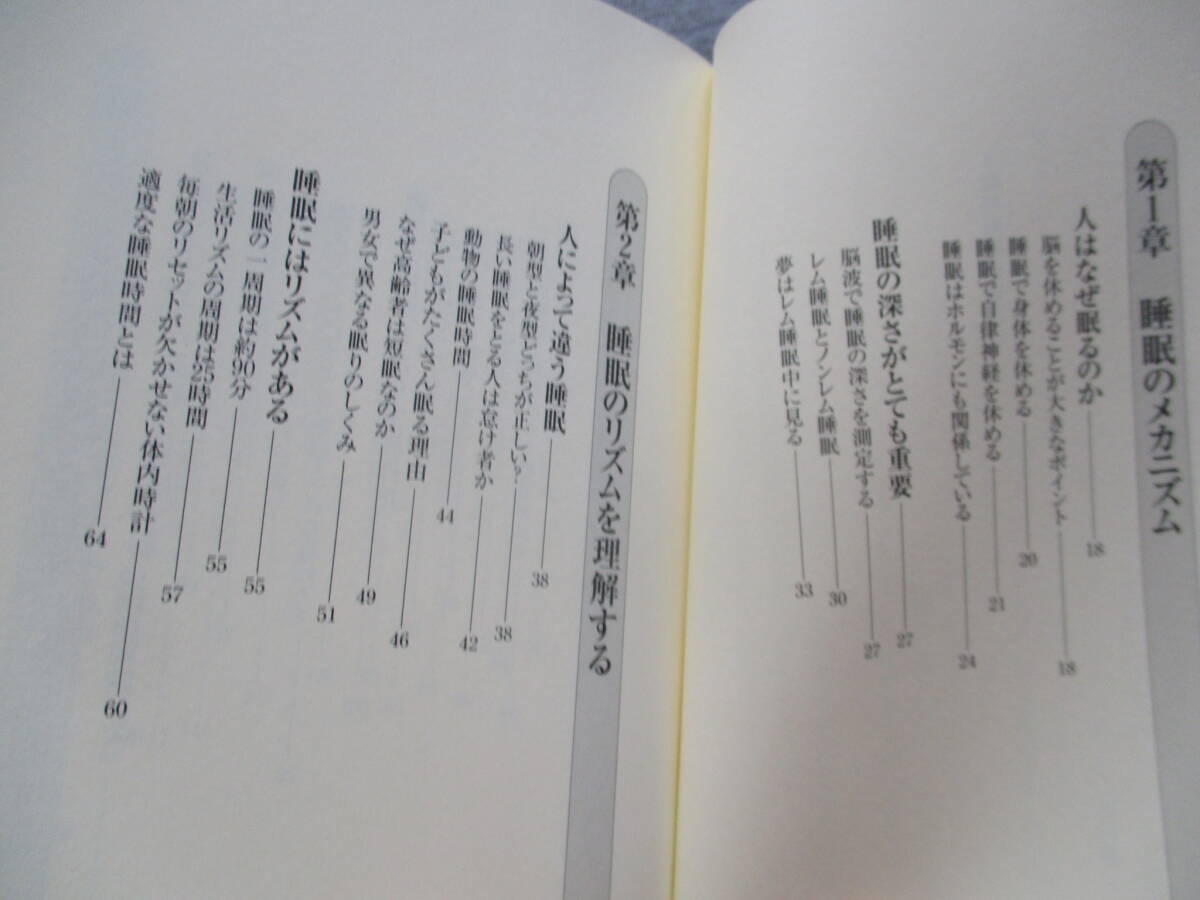 第1章 睡眠のメカニズム
人はなぜ眠るのか 18
脳を休めることが大きなポイント 18
睡眠で身体を休める 20
睡眠で自律神経を休める 21
睡眠はホルモンにも関係している 24
睡眠の深さがとても重要 27
脳波で睡眠の深さを測定する 27
レム睡眠とノンレム睡眠 30
夢はレム睡眠中に見る 33
第2章 睡眠のリズムを理解する
人によって違う睡眠 38
朝型と夜型どっちが正しい? 38
長い睡眠をとる人は怠け者か 42
動物の睡眠時間 44
子どもがたくさん眠る理由 46
なぜ高齢者は短眠なのか 49
男女で異なる眠りのしくみ 51
睡眠にはリズムがある 55
睡眠の一周期は約90分 55
生活リズムの周期は25時間 57
毎朝のリセットが欠かせない体内時計 60
適度な睡眠時間とは 64